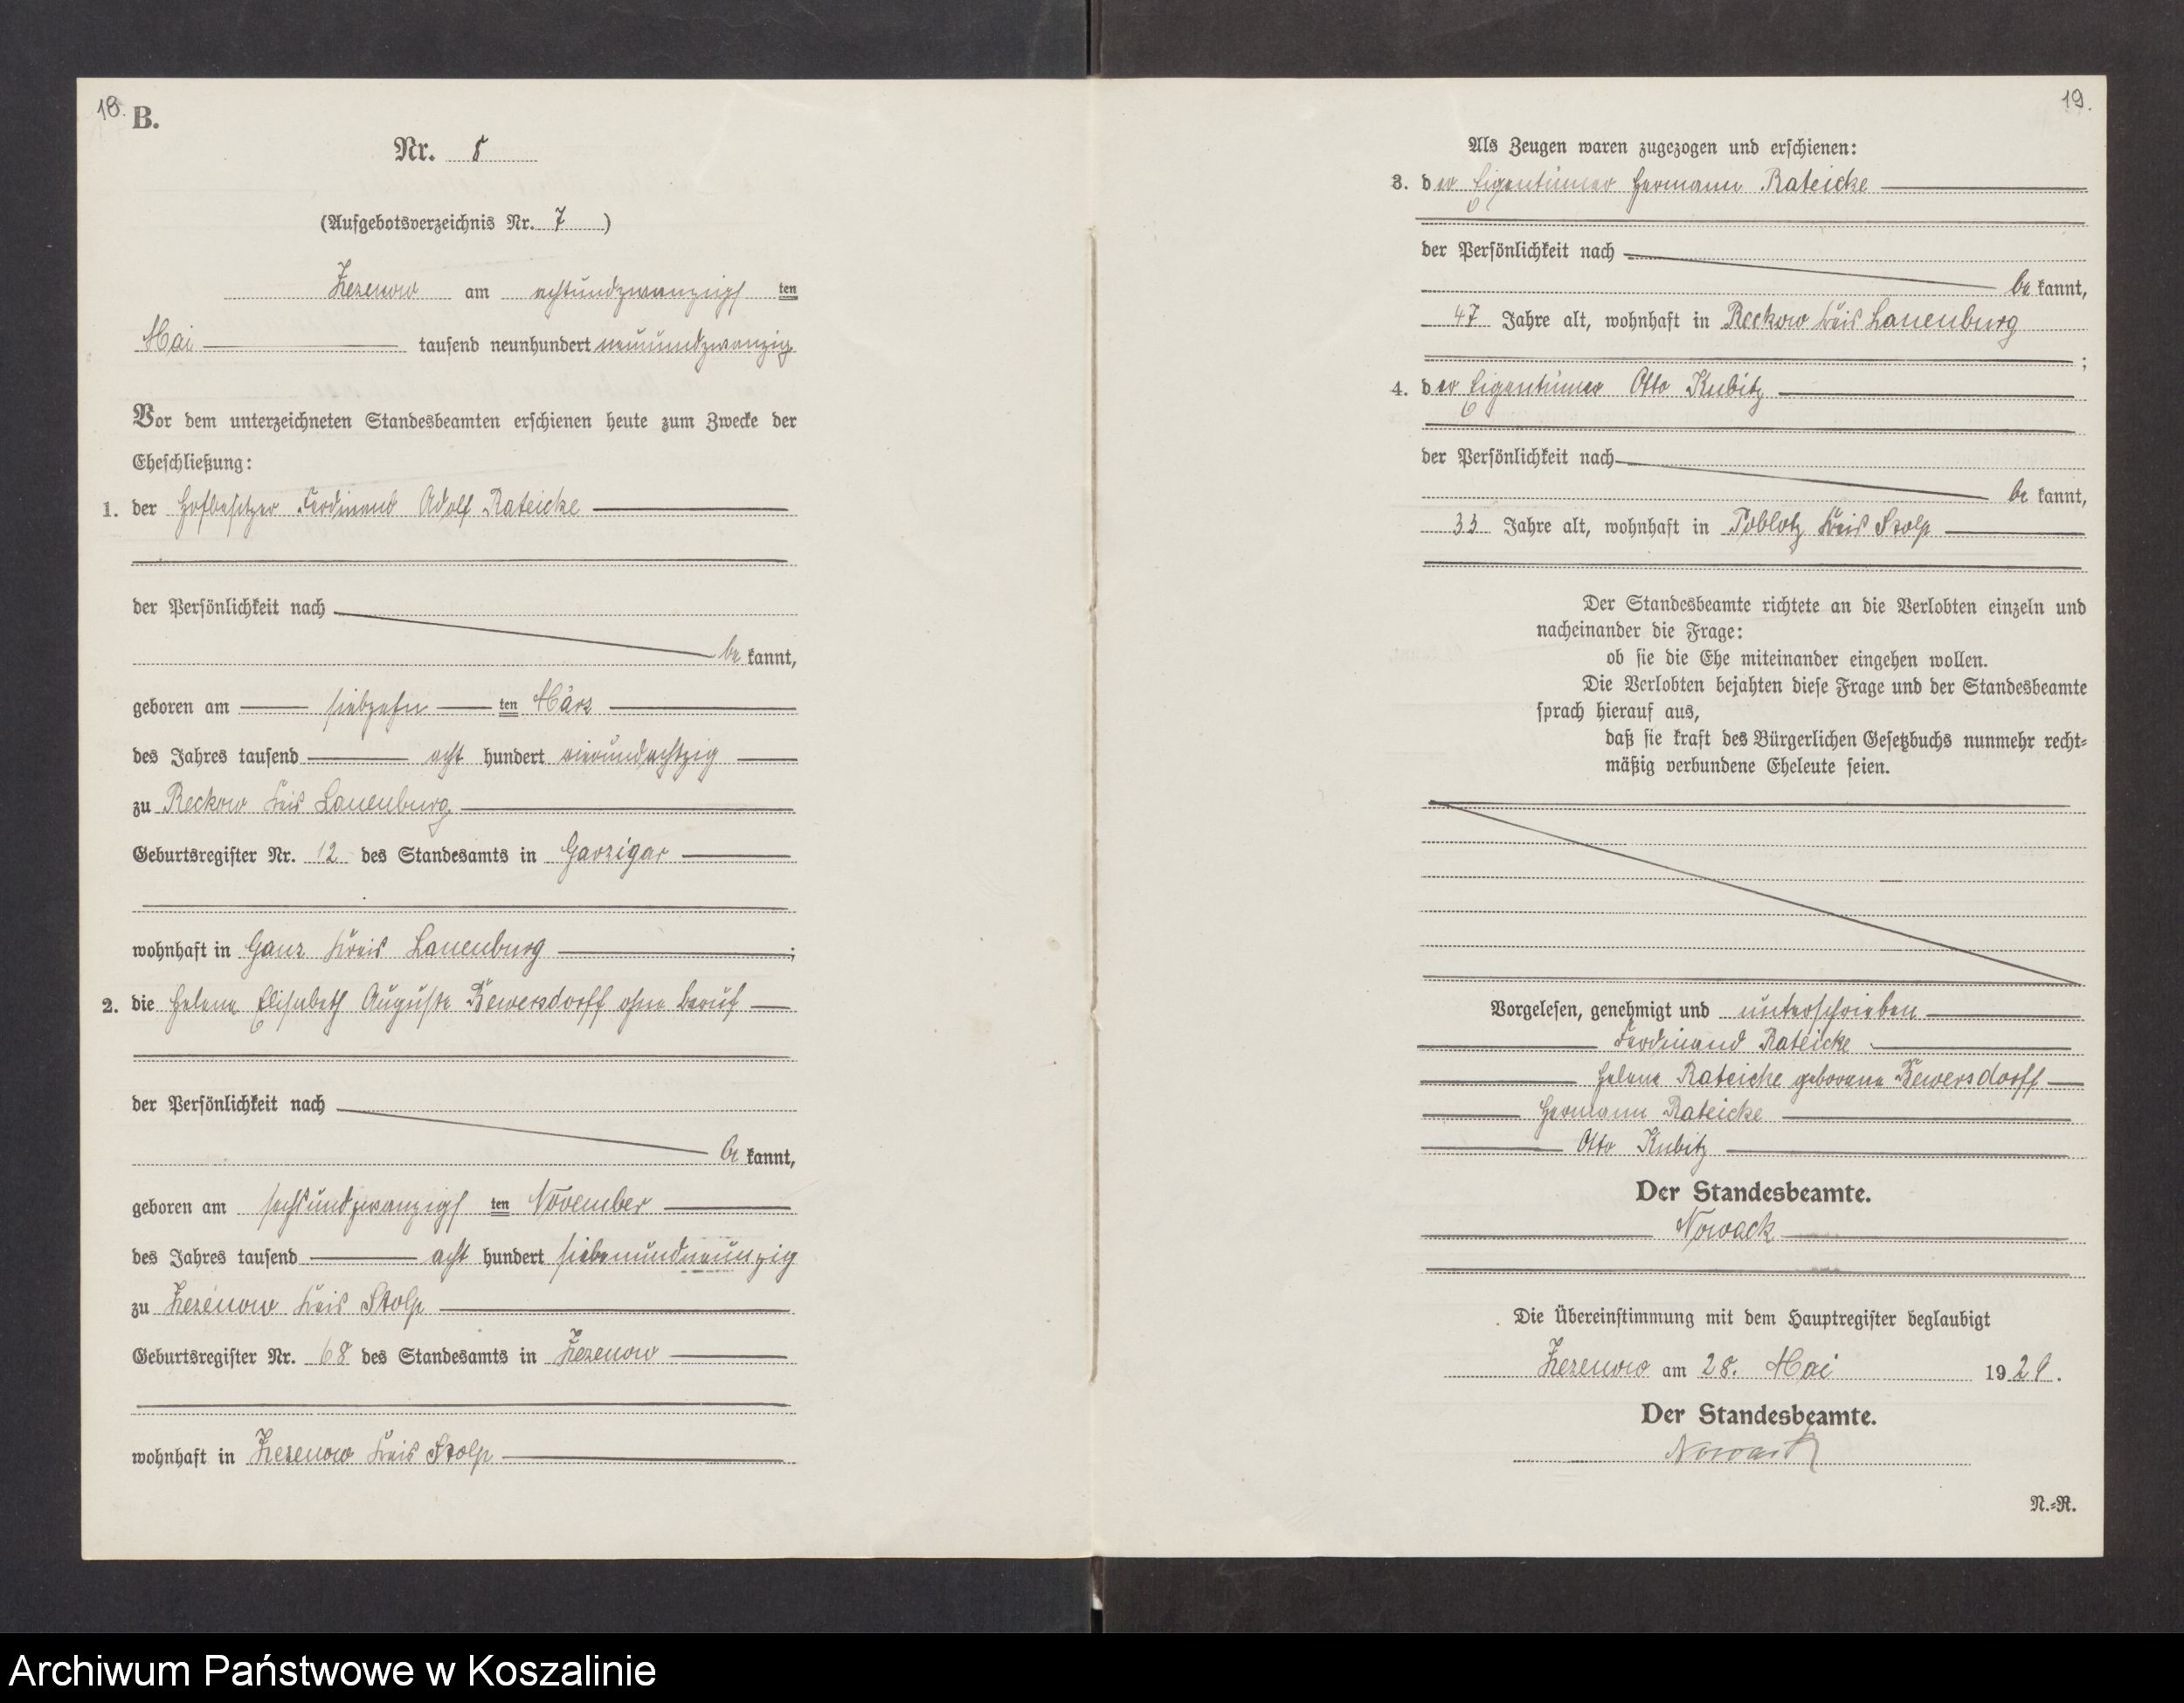 18.
B.
Nr. 8
(Aufgebotsverzeichnis Nr. 7)
Zezenow am achtundzwanzigsten
Mai tausend neunhundert neunundzwanzig
Vor dem unterzeichneten Standesbeamten erschienen heute zum Zwecke der
Eheschließung:
1. der Hofbesitzer Ferdinand Adolf Rateicke
der Persönlichkeit nach
bekannt,
geboren am siebzehnten März
des Jahres tausend acht hundert vierundachtzig
zu Reckow Kreis Lauenburg
Geburtsregister Nr. 12 des Standesamts in Garzigar
wohnhaft in Ganz Kreis Lauenburg;
2. die Helene Elisabeth Auguste Zewersdorff ohne Beruf
der Persönlichkeit nach
bekannt,
geboren am sechsundzwanzigsten November
des Jahres tausend acht hundert siebenundneunzig
zu Zezenow Kreis Stolp
Geburtsregister Nr. 68 des Standesamts in Zezenow
wohnhaft in Zezenow Kreis Stolp
19.
Als Zeugen waren zugezogen und erschienen:
3. der Eigentümer Hermann Rateicke
der Persönlichkeit nach
bekannt,
47 Jahre alt, wohnhaft in Reckow Kreis Lauenburg
;
4. der Eigentümer Otto Kubitz
der Persönlichkeit nach
bekannt,
33 Jahre alt, wohnhaft in Poblotz Kreis Stolp
Der Standesbeamte richtete an die Verlobten einzeln und
nacheinander die Frage:
ob sie die Ehe miteinander eingehen wollen.
Die Verlobten bejahten diese Frage und der Standesbeamte
sprach hierauf aus,
daß sie kraft des Bürgerlichen Gesetzbuchs nunmehr recht-
mäßig verbundene Eheleute seien.
Vorgelesen, genehmigt und unterschrieben
Ferdinand Rateicke
Helene Rateicke geborene Zewersdorff
Hermann Rateicke
Otto Kubitz
Der Standesbeamte.
Nowack
Die Übereinstimmung mit dem Hauptregister beglaubigt
Zezenow am 28. Mai 1929.
Der Standesbeamte.
Nowack
N.-R.
Archiwum Państwowe w Koszalinie